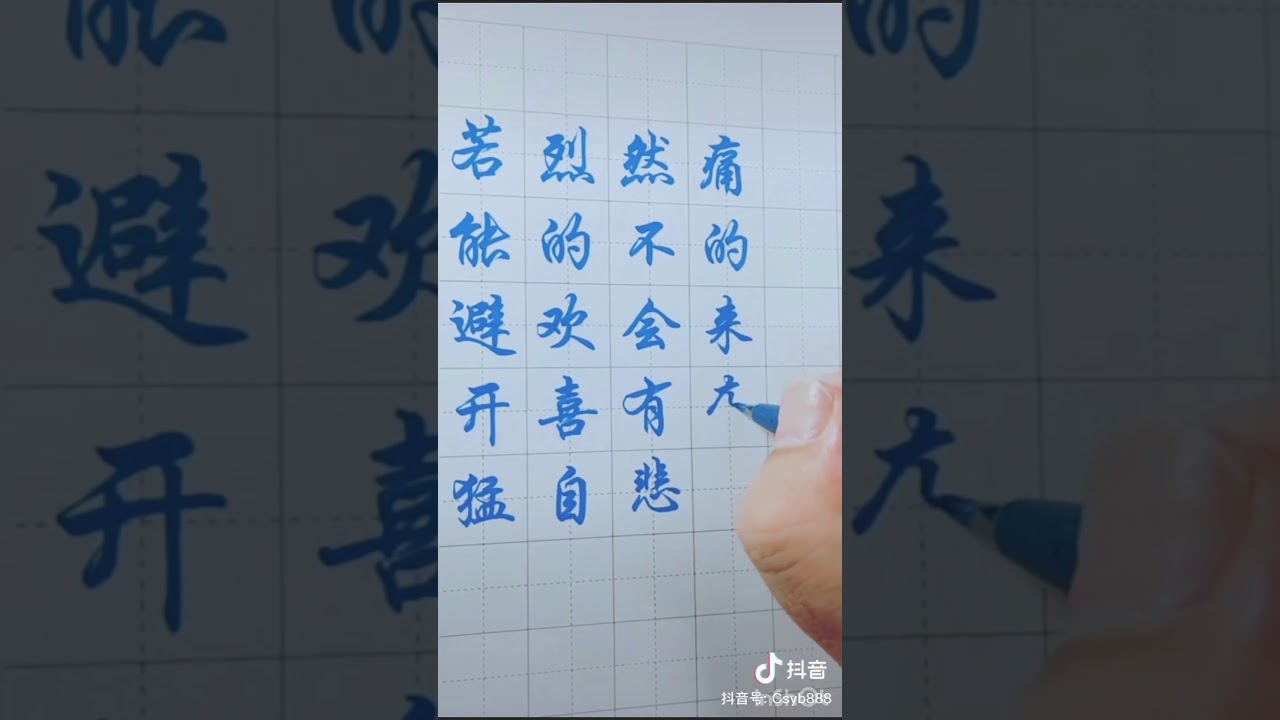 若能避开猛
烈的欢喜自
然不会有悲
痛的来
抖音
抖音号: Csyb888